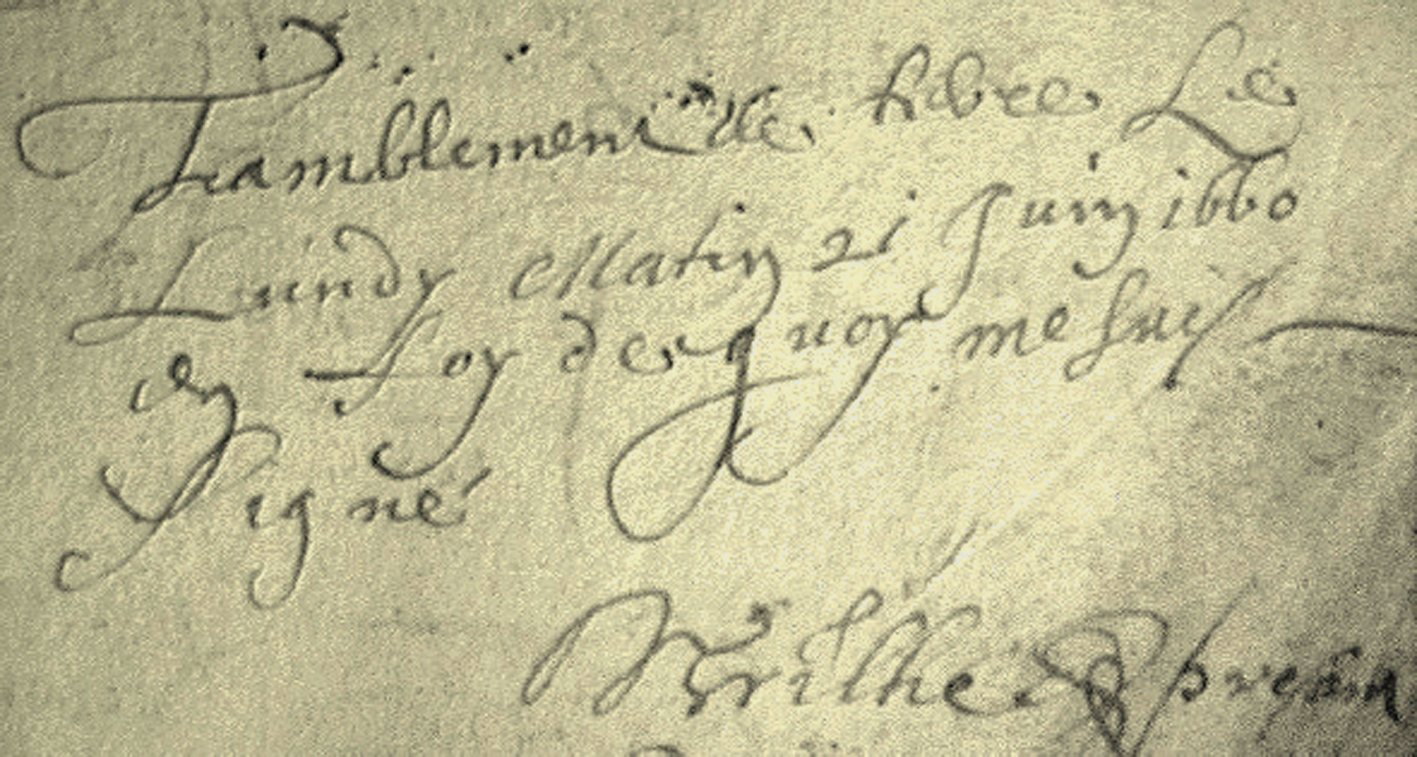 Tramblement de terre Le
Lundy Matin 21 Juin 1660
en foy de quoy me suis
signé